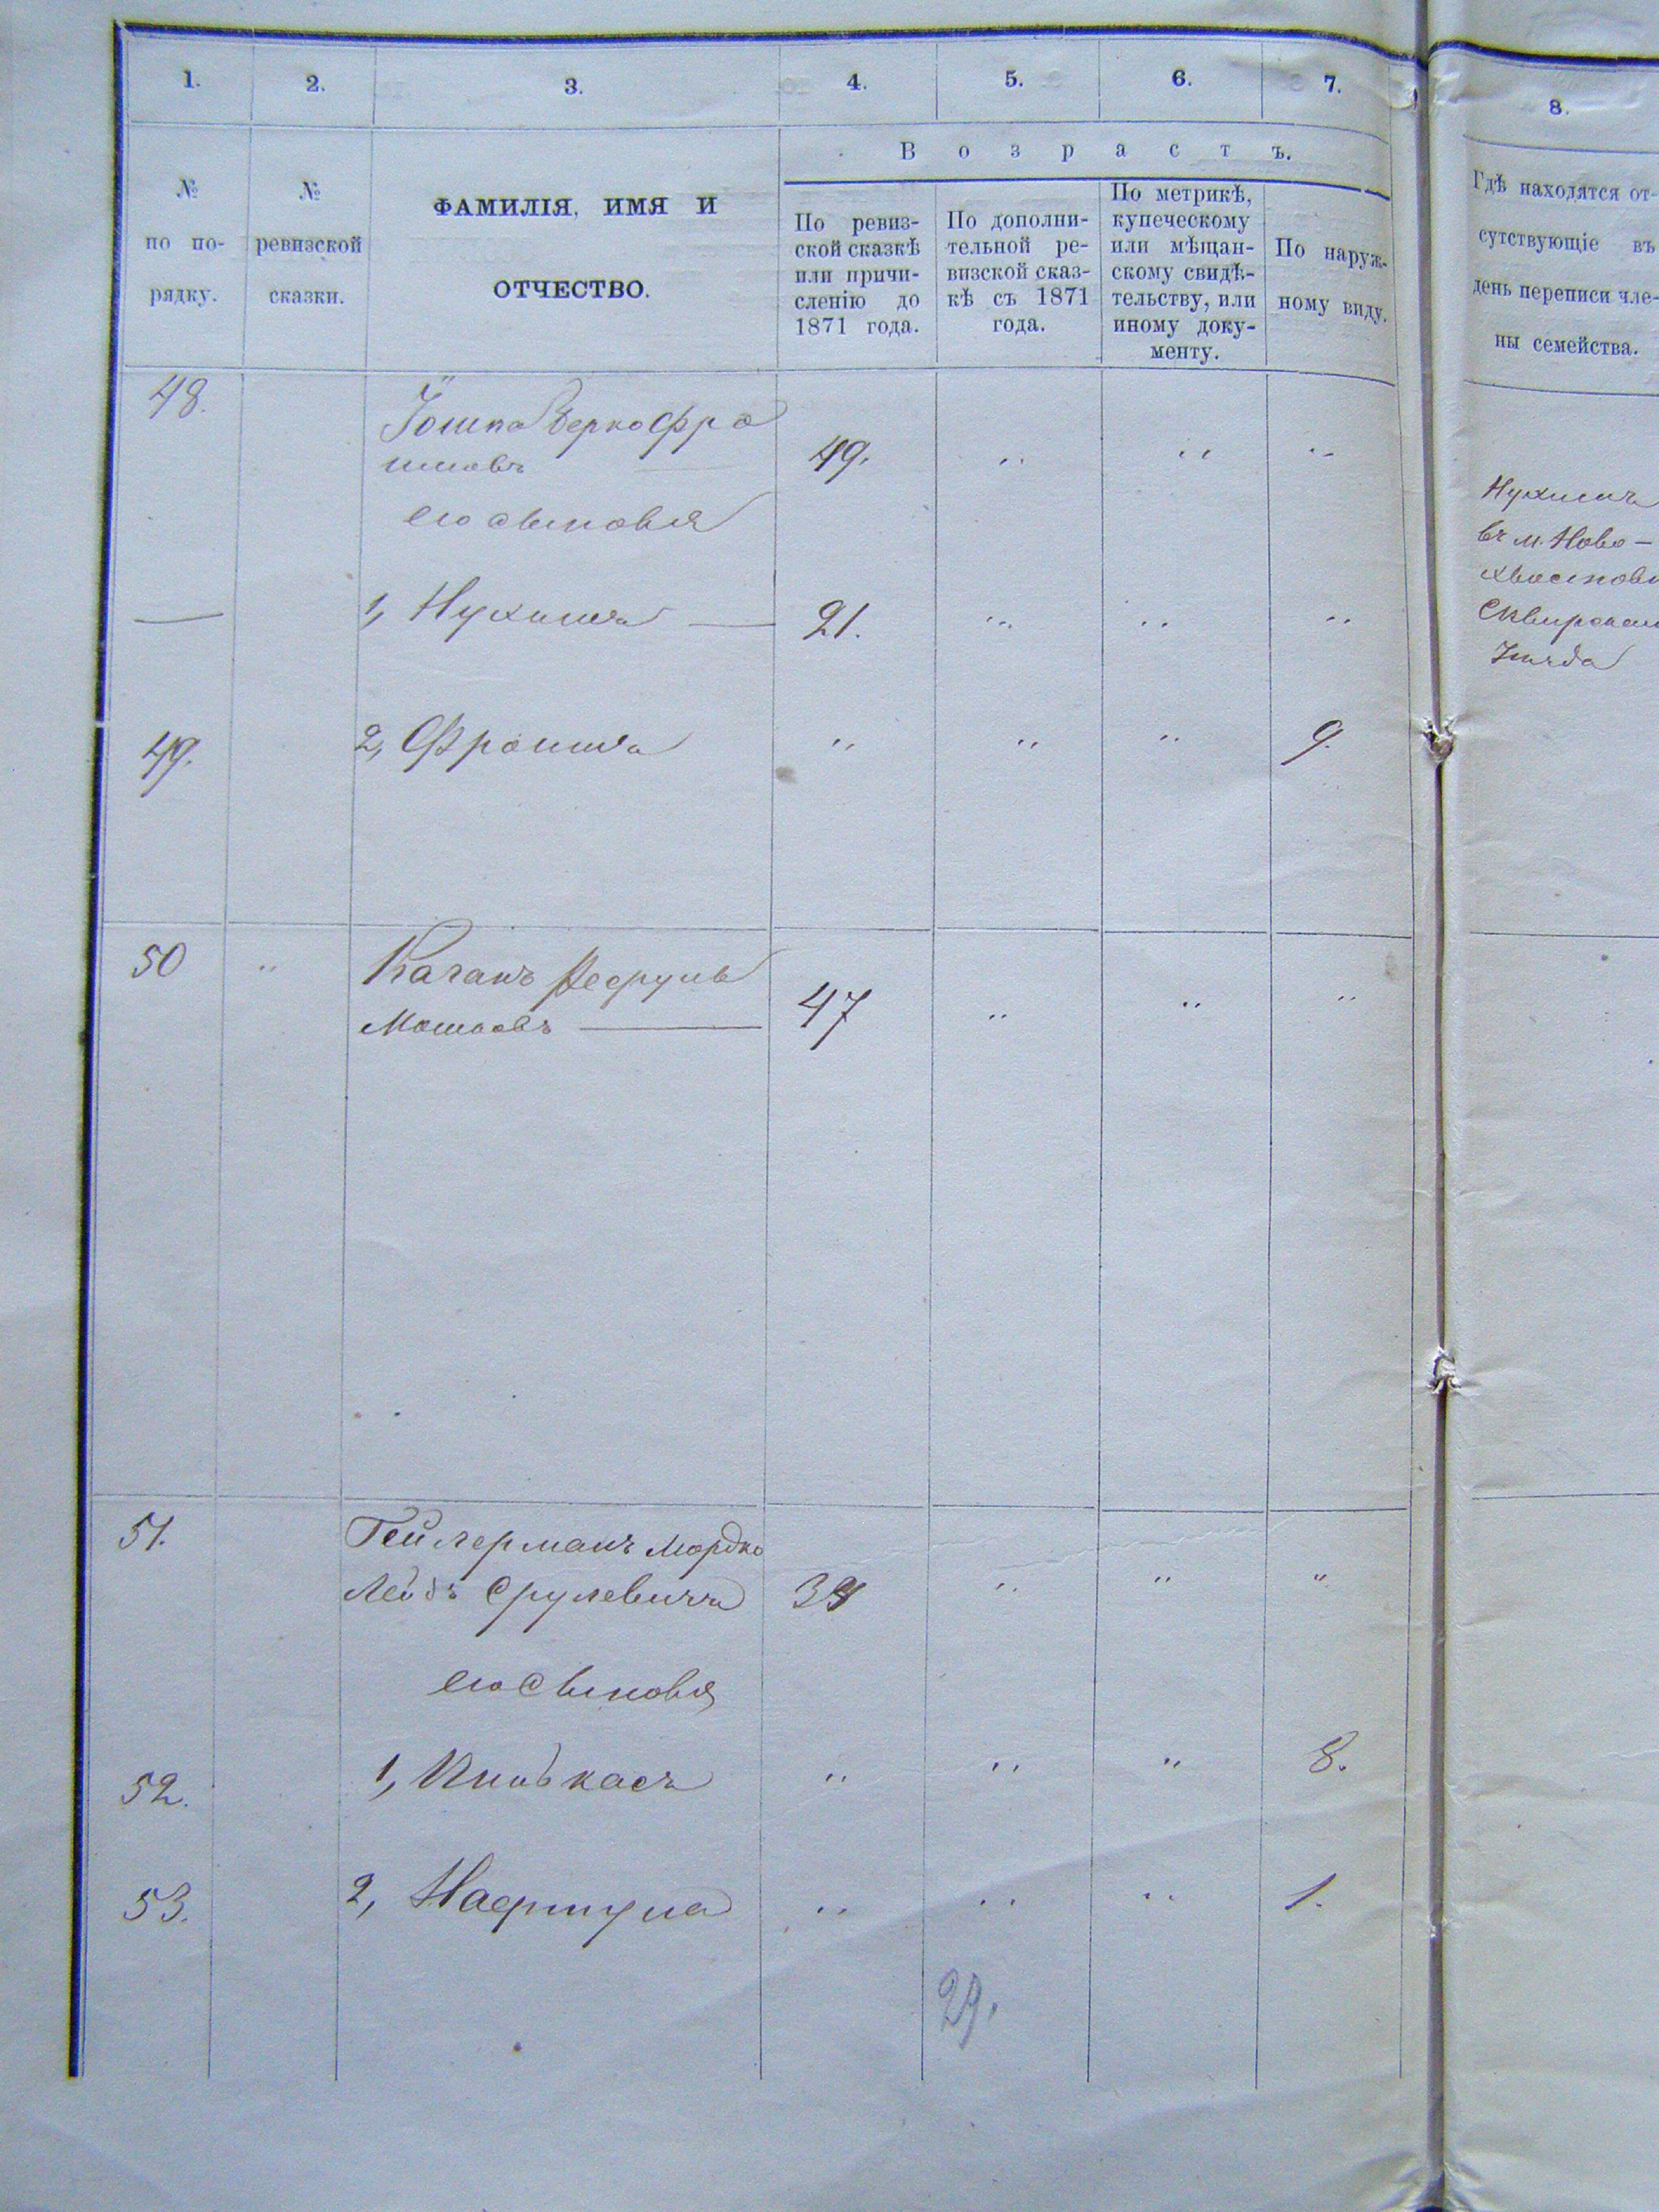 1. 2. 3. 4. 5. 6. 7. 8.
Возрастъ.
№ по по-
рядку.
№
ревизской
сказки.
ФАМИЛІЯ, ИМЯ И
ОТЧЕСТВО.
По ревиз-
ской сказкѣ
или причи-
сленію до
1871 года.
По дополни-
тельной ре-
визской сказ-
кѣ съ 1871
года.
По метрикѣ,
купеческому
или мѣщан-
скому свидѣ-
тельству, или
иному доку-
менту.
По наруж-
ному виду.
Гдѣ находятся от-
сутствующіе въ
день переписи чле-
ны семейства.
48. Берко Фро
имовъ 49. " " "
его сыновья
— 1, Нухимъ — 21. " " "
Нухимъ
въ м. Ново-
Сквирскаго
Уѣзда
49. 2, Фроимъ " " " 9.
50 " Каганъ
Мошковъ — 47 " " "
51. Гейлерманъ Мордко
Лейбъ Срулевичъ " " "
его сыновья
52. 1, Пинькасъ " " " 8.
53. 2, Нафтула " " " 1.
29.